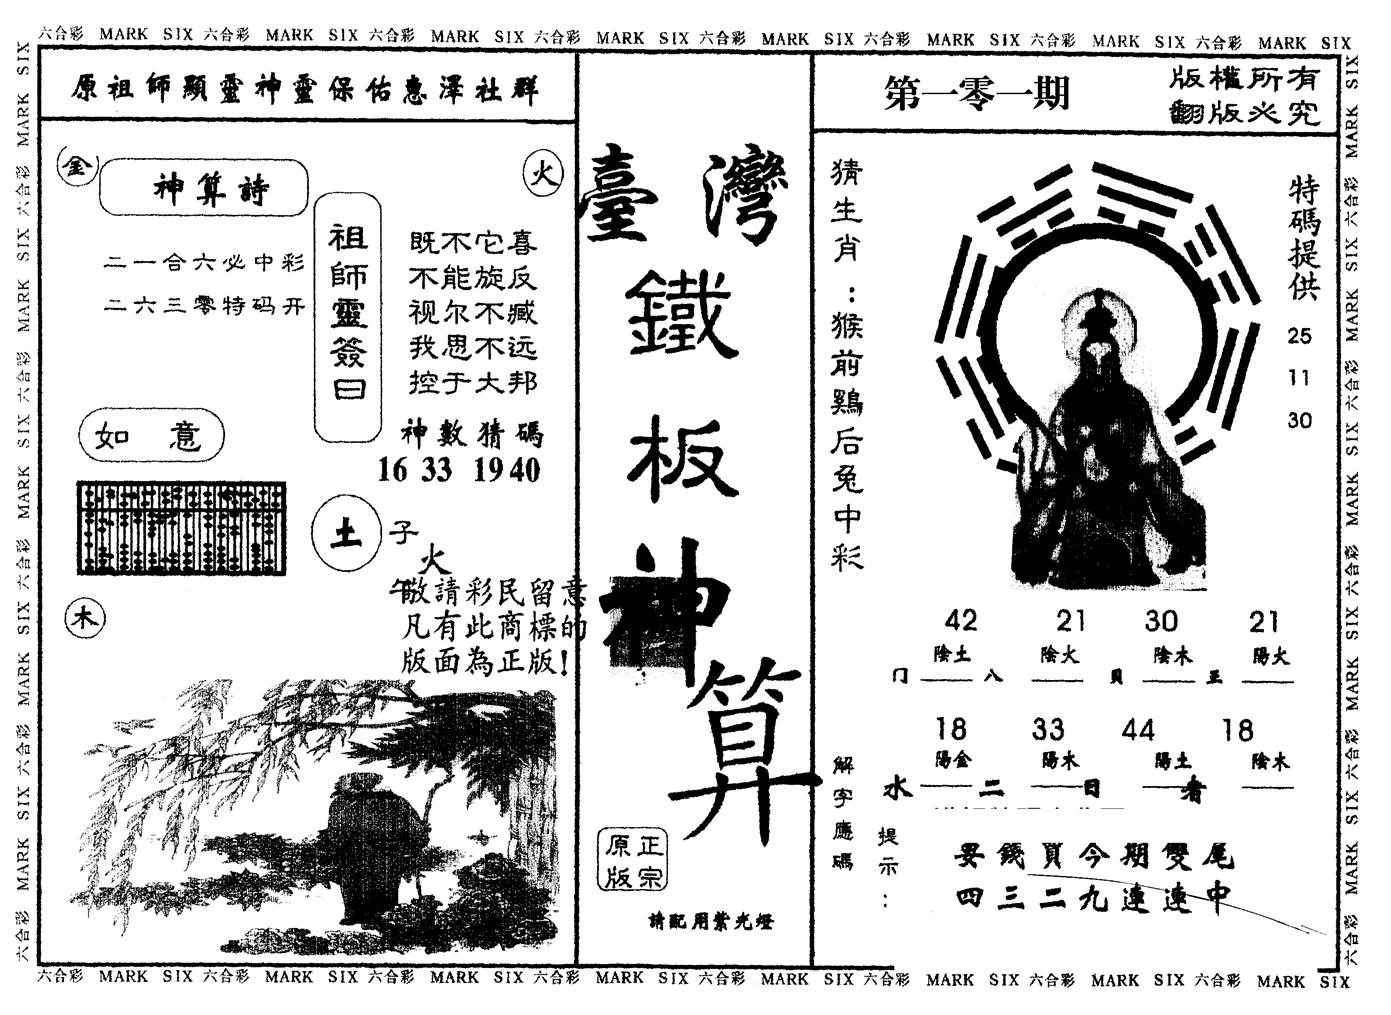 六合彩 MARK SIX 六合彩 MARK SIX 六合彩 MARK SIX 六合彩 MARK SIX 六合彩 MARK SIX 六合彩 MARK SIX 六合彩 MARK SIX 六合彩 MARK SIX
原祖師顯靈神靈保佑惠澤社群
金
神算詩
火
二一合六必中彩
二六三零特码开
祖師靈簽曰
既不它喜
不能旋反
视尔不臧
我思不远
控于大邦
神數猜碼
16 33 19 40
如意
土
子
火
木
敬請彩民留意
凡有此商標的
版面為正版!
臺灣
鐵
板
神
算
正宗
原版
請配用紫光燈
第一零一期
版權所有
翻版必究
猜生肖:猴前鷄后兔中彩
特碼提供
25
11
30
42 21 30 21
陰土 陰火 陰木 陽火
门 八 貝 王
18 33 44 18
陽金 陽木 陽土 陰木
水 二 日 者
解字應碼
提示:
要錢買今期雙尾
四三二九連連中
六合彩 MARK SIX 六合彩 MARK SIX 六合彩 MARK SIX 六合彩 MARK SIX 六合彩 MARK SIX 六合彩 MARK SIX 六合彩 MARK SIX 六合彩 MARK SIX